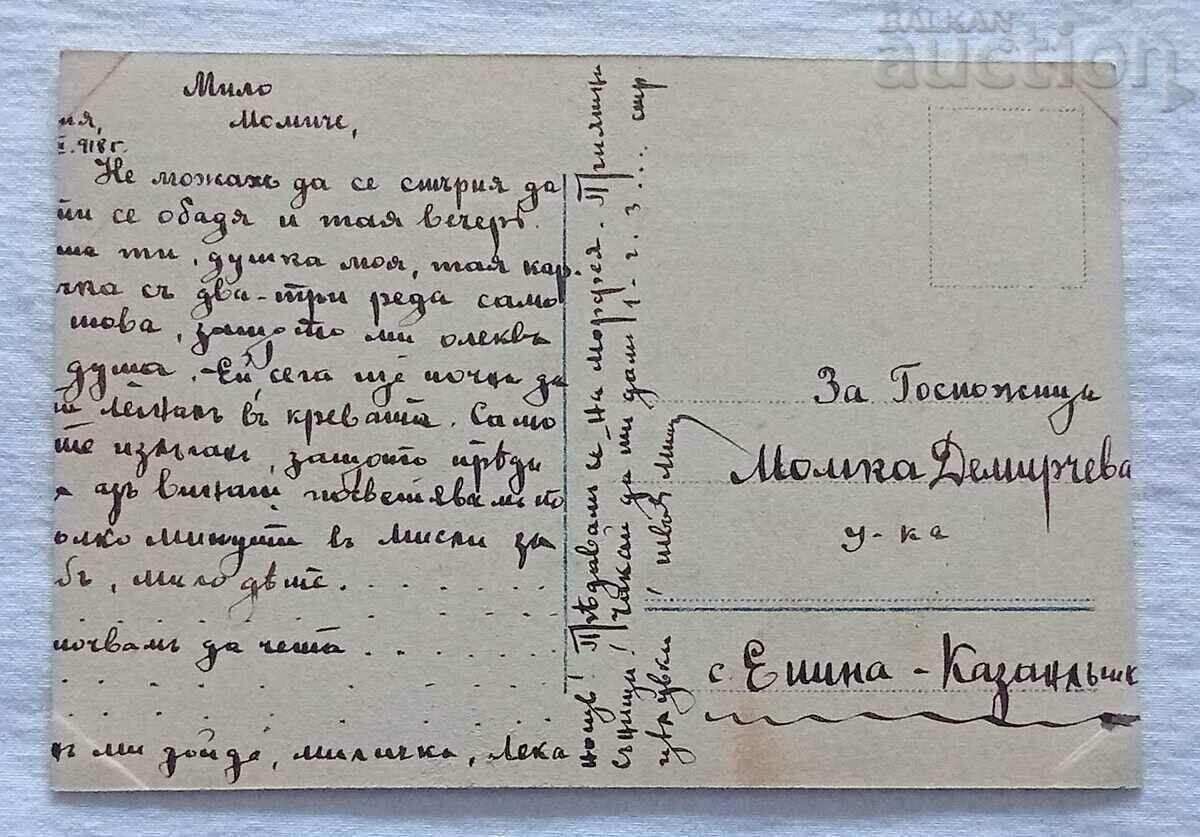 BALKAN
auction
Мило
Момиче,
ия,
II.918 г.
Не можахъ да се стърпя да
ти се обадя и тая вечеръ.
ша ти, душка моя, тая кар-
чка съ два-три реда само
това, защото ми олеква
душа. -Ей сега ще почна да
лежанъ въ кревата. Само
защото прѣди
азъ винаги посветявамъ по
олко минути въ мисли за
бъ, мило дѣте. . . . . . .
почвамъ да чета . . . . . .
ми дойде, миличка, лека
нощь! Прѣдавамъ се на Морфея. Приятни
сънища! Чакай да ти дамъ 1 - 2. 3. . . .
цѣлувки ! твой Миш
За Госпожица
Момка Демирчева
у-ка
с. Енина - Казанлъшк